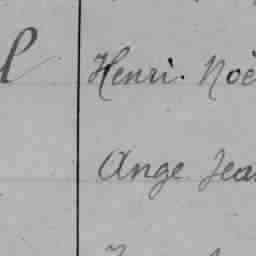 Henri. Noë
Ange Jea